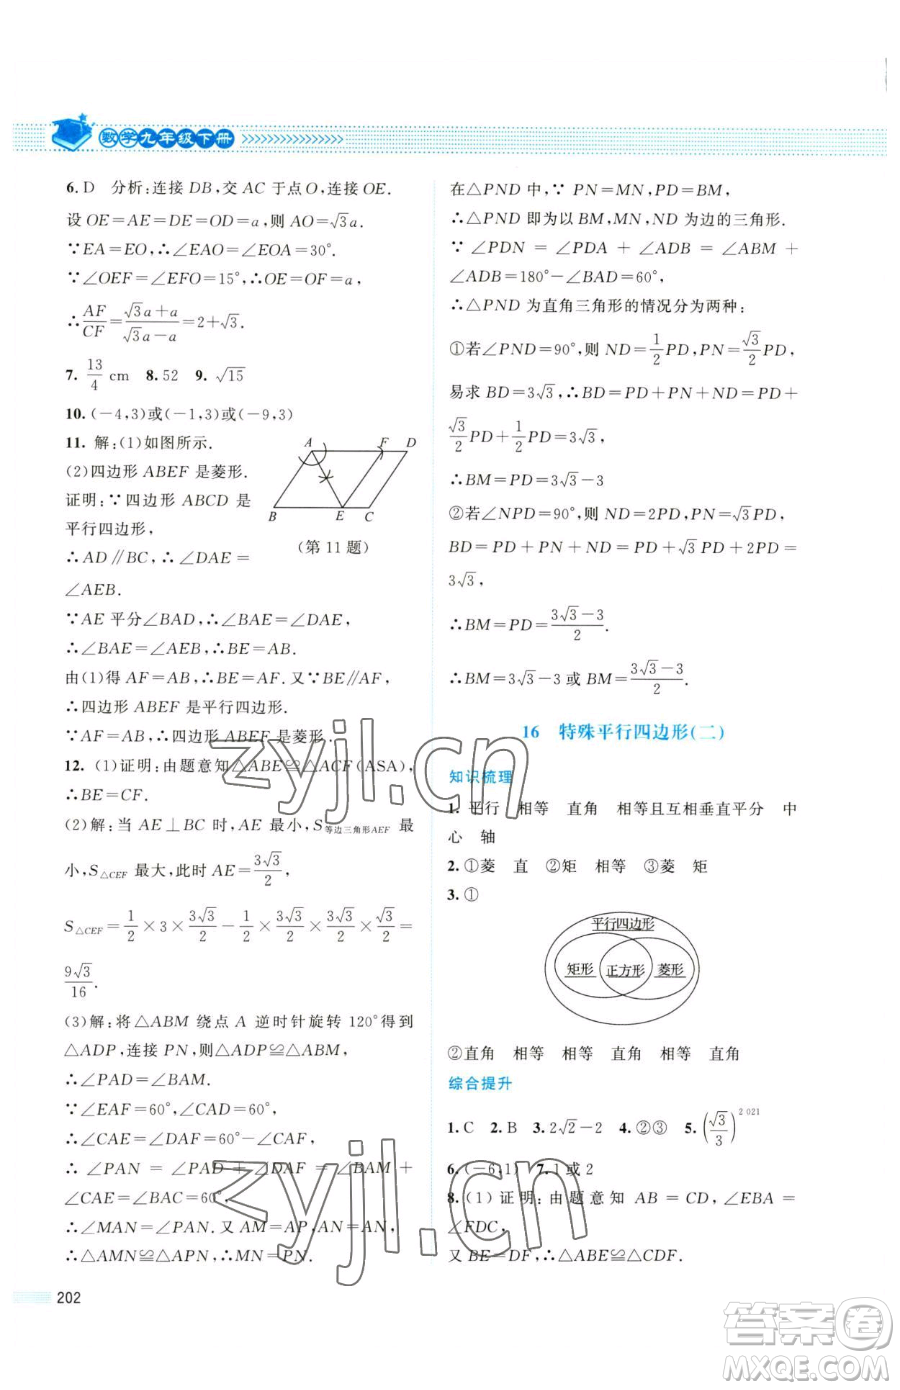 数学九年级下册
6. D 分析:连接 DB,交 AC 于点 O,连接 OE.
设 OE=AE=DE=OD=a,则 AO=√3a.
∵EA=EO,∴∠EAO=∠EOA=30°.
∵∠OEF=∠EFO=15°,∴OE=OF=a.
∴AF/CF=(√3a+a)/(√3a-a)=2+√3.
7. 13/4 cm 8. 52 9. √15
10. (-4,3)或(-1,3)或(-9,3)
11. 解:(1)如图所示.
(2)四边形 ABEF 是菱形.
证明:∵四边形 ABCD 是
平行四边形,
∴AD∥BC,∴∠DAE=
∠AEB.
A F D
B E C
(第 11 题)
∵AE 平分∠BAD,∴∠BAE=∠DAE,
∴∠BAE=∠AEB,∴BE=AB.
由(1)得 AF=AB,∴BE=AF.又∵BE∥AF,
∴四边形 ABEF 是平行四边形.
∵AF=AB,∴四边形 ABEF 是菱形.
12. (1)证明:由题意知△ABE≌△ACF(ASA),
∴BE=CF.
(2)解:当 AE⊥BC 时,AE 最小,S等边三角形AEF 最
小,S△CEF 最大,此时 AE=3√3/2,
S△CEF=1/2×3×3√3/2-1/2×3√3/2×3√3/2×√3/2=
9√3/16.
(3)解:将△ABM 绕点 A 逆时针旋转 120°得到
△ADP,连接 PN,则△ADP≌△ABM,
∴∠PAD=∠BAM.
∵∠EAF=60°,∠CAD=60°,
∴∠CAE=∠DAF=60°-∠CAF,
∴∠PAN=∠PAD+∠DAF=∠BAM+
∠CAE=∠BAC=60°,
∴∠MAN=∠PAN.又 AM=AP,AN=AN,
∴△AMN≌△APN,∴MN=PN.
在△PND 中,∵PN=MN,PD=BM,
∴△PND 即为以 BM,MN,ND 为边的三角形.
∵∠PDN=∠PDA+∠ADB=∠ABM+
∠ADB=180°-∠BAD=60°,
∴△PND 为直角三角形的情况分为两种:
①若∠PND=90°,则 ND=1/2PD,PN=√3/2PD,
易求 BD=3√3,∴BD=PD+PN+ND=PD+
√3/2PD+1/2PD=3√3,
∴BM=PD=3√3-3
②若∠NPD=90°,则 ND=2PD,PN=√3PD,
BD=PD+PN+ND=PD+√3PD+2PD=
3√3,
∴BM=PD=(3√3-3)/2.
∴BM=3√3-3 或 BM=(3√3-3)/2.
16 特殊平行四边形(二)
知识梳理
1. 平行 相等 直角 相等且互相垂直平分 中
心 轴
2. ①菱 直 ②矩 相等 ③菱 矩
3. ①
平行四边形
矩形 正方形 菱形
②直角 相等 相等 直角 相等 直角
综合提升
1. C 2. B 3. 2√2-2 4. ②③ 5. (√3/3)^2 021
6. (-6,1) 7. 1 或 2
8. (1)证明:由题意知 AB=CD,∠EBA=
∠FDC,
又 BE=DF,∴△ABE≌△CDF.
202
zyjl.cn
zyjl.cn
答案圈
MXQE.COM